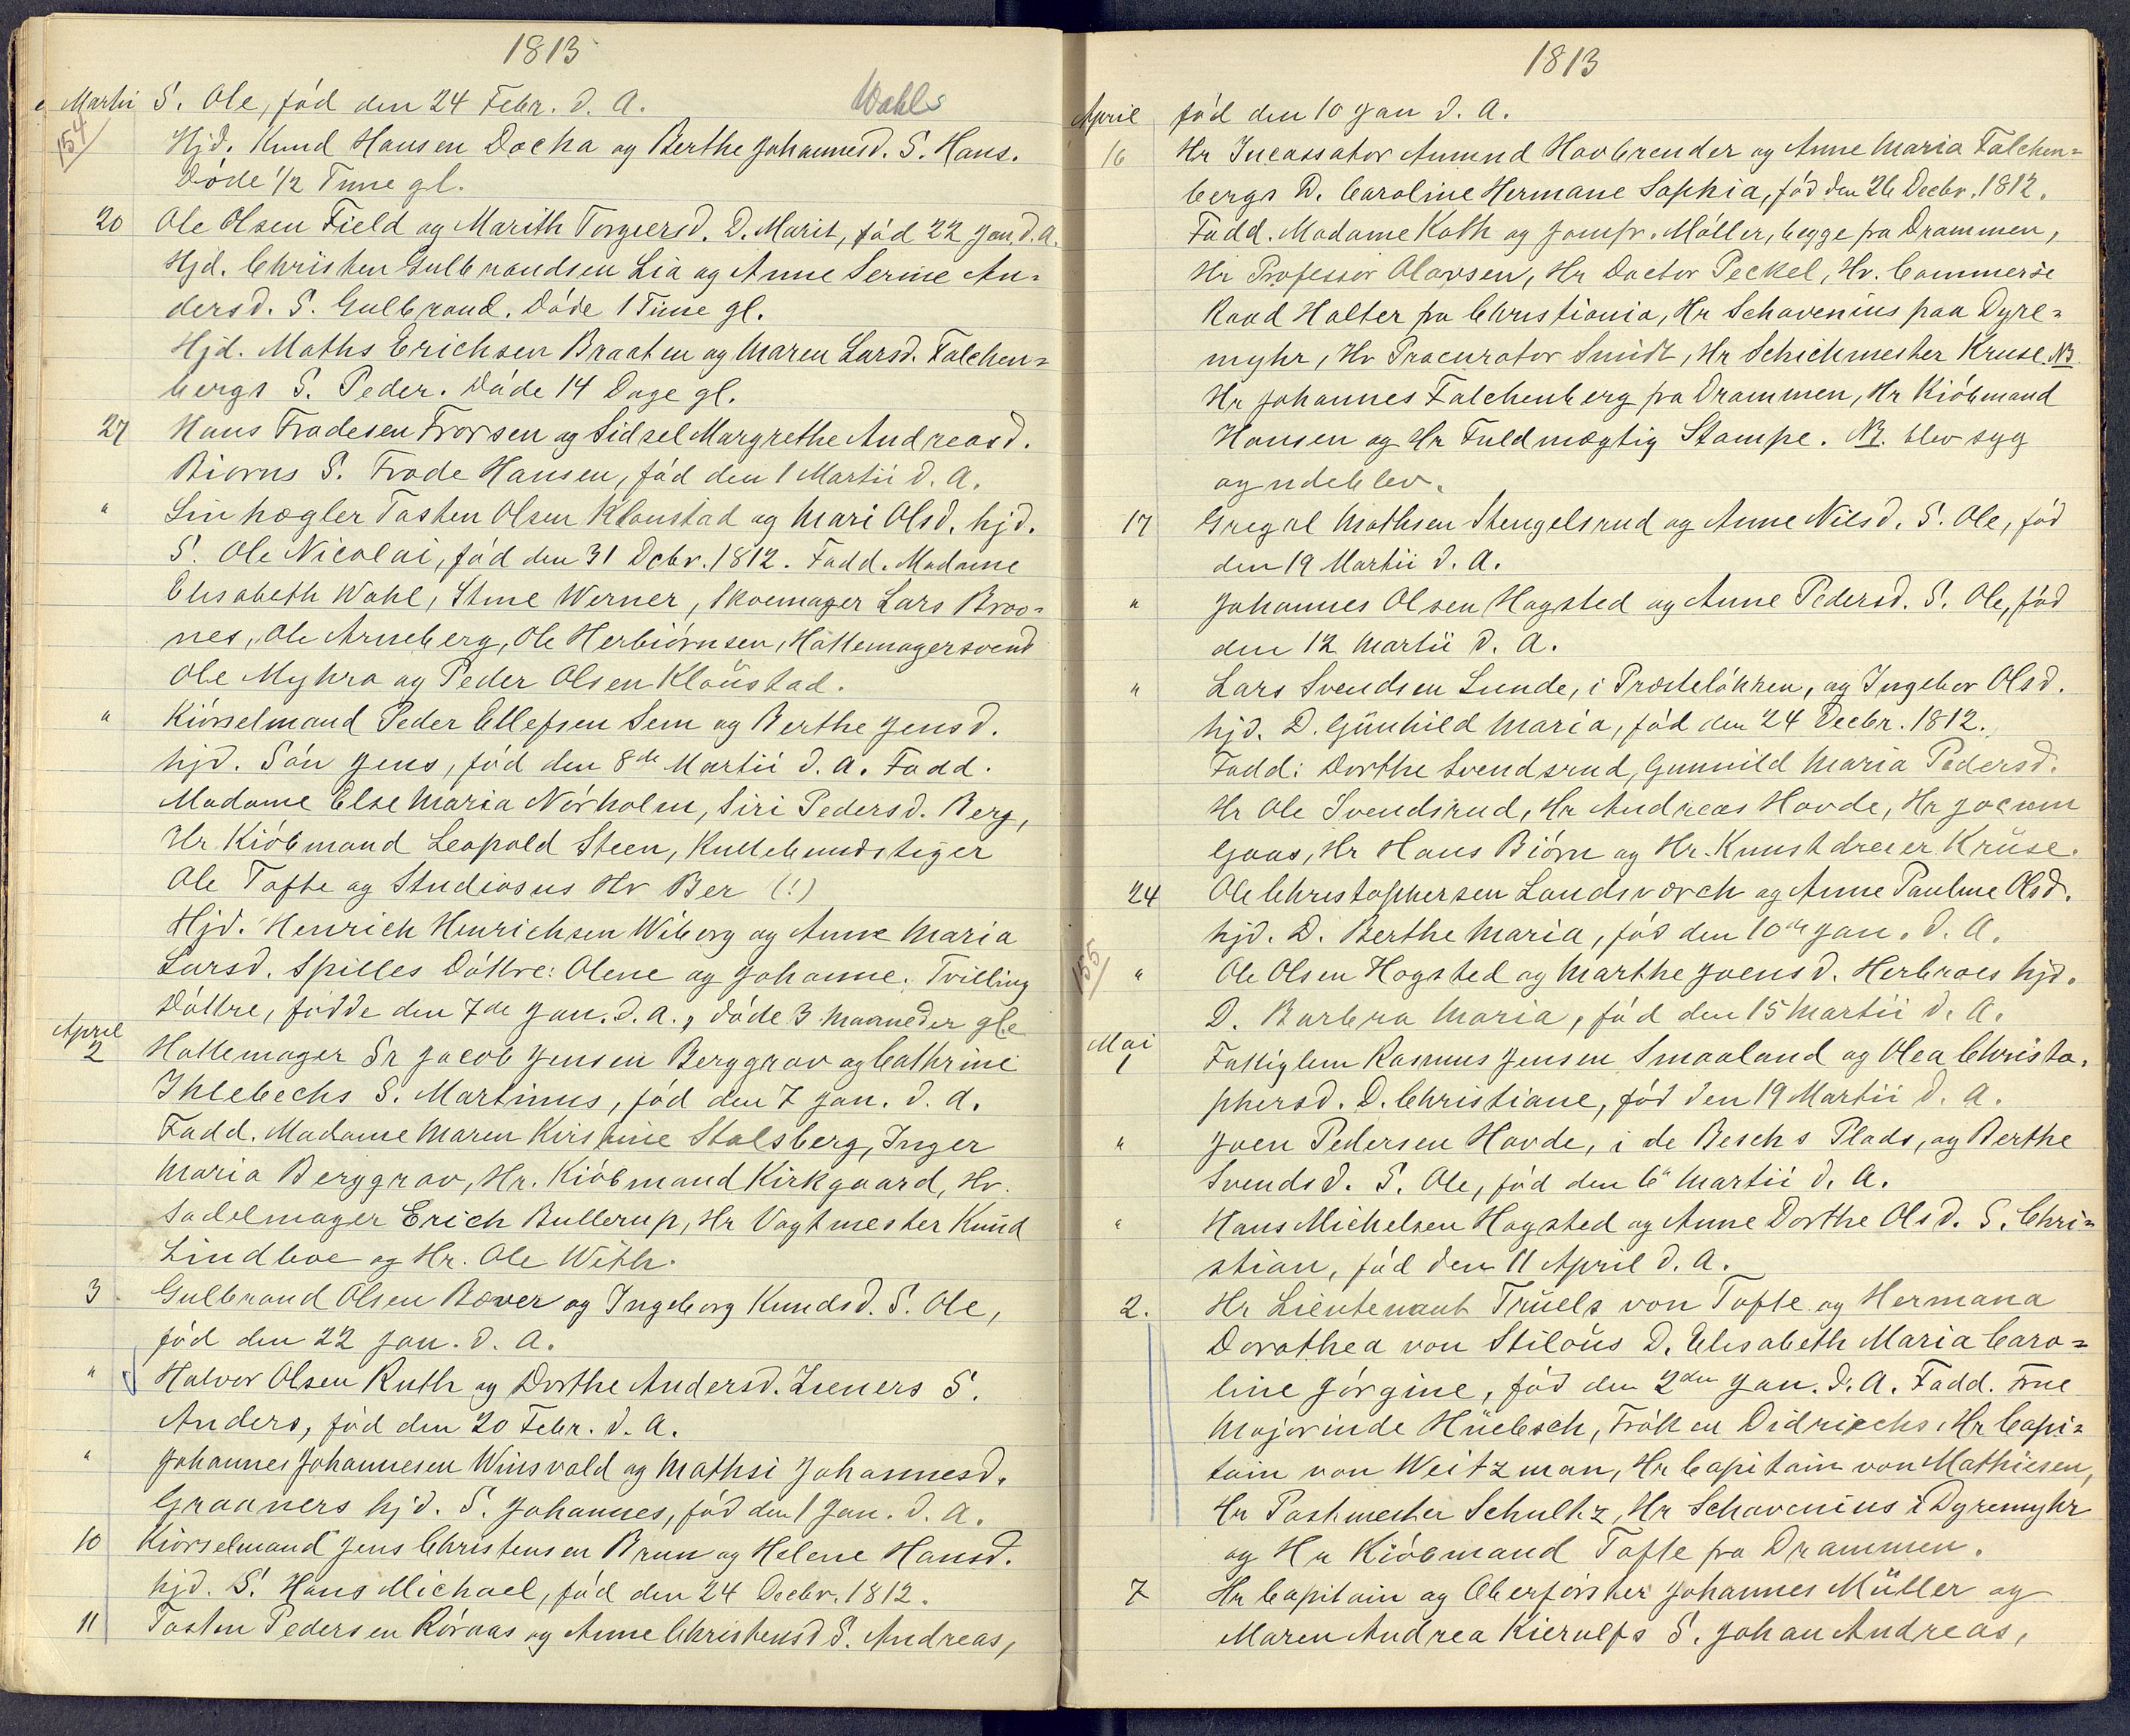 1813
Martii S. Ole, fød den 24 Febr. d. A. Wahls
154/ Hjd. Knud Hansen Docka og Berthe Johannesd. S. Hans.
Døde 1/2 Time gl.
20 Ole Olsen Field og Marith Torgersd. D. Marit, fød 22 Jan d. A.
Hjd. Christen Gulbrandsen Lia og Anne Serine An=
dersd. S. Gulbrand. Døde 1 Time gl.
Hjd. Maths Erichsen Braaten og Maren Larsd. Falchen=
bergs S. Peder. Døde 14 Dage gl.
27 Hans Fradesen Frorsen og Sidsel Margrethe Andreasd.
Biørns S. Frode Hansen, fød den 1 Martii d. A.
" Linhægler Tosten Olsen Klonstad og Mari Olsd. hjd.
S. Ole Nicolai, fød den 31 Dcbr. 1812. Fadd. Madame
Elisabeth Wahl, Stine Werner, Skoemager Lars Broo=
nes, Ole Arneberg, Ole Herbiørnsen, Hattemagersvend
Ole Myhra og Peder Olsen Kloüstad.
" Kiørselmand Peder Ellefsen Sem og Berthe Jensd.
hjd. Søn Jens, fød den 8de Martii d. A. Fadd.
Madame Else Maria Nørholm, Siri Pedersd. Berg,
Hr. Kiøbmand Leopold Steen, Kullebundstiger
Ole Tofte og Studiosus Hr Ber (!)
Hjd. Henrich Henrichsen Wiborg og Anne Maria
Larsd. Spilles Døttre: Olene og Johanne. Tvilling
Døttre, fødde den 7de Jan. d. A., døde 3 Maaneder gle
April
2 Hattemager Sr Jacob Jensen Berggrav og Cathrine
Ihlebechs S. Martinus, fød den 7 Jan. d. A.
Fadd. Madame Maren Kirstine Stalsberg, Inger
Maria Berggrav, Hr. Kiøbmand Kirkgaard, Hr.
Sadelmager Erich Bullerup, Hr Vagtmester Knud
Lindboe og Hr. Ole With.
3 Gulbrand Olsen Bæver og Ingeborg Knudsd. S. Ole,
fød den 22 Jan. d. A.
" Halvor Olsen Ruth og Dorthe Andersd. Zieners S.
Anders, fød den 20 Febr. d. A.
" Johannes Johannesen Winsvold og Mathsi Johannesd.
Graaners hjd. S. Johannes, fød den 1 Jan. d. A.
10 Kiørselmand Jens Christensen Brun og Helene Hansd.
hjd. S. Hans Michael, fød den 24 Decbr. 1812.
11 Tosten Pedersen Røraas og Anne Christensd S. Andreas,
1813
April fød den 10 Jan d. A.
16 Hr Incassator Amund Hovbrender og Anne Maria Falchen=
bergs D. Caroline Hermane Sophia, fød den 26 Decbr. 1812.
Fadd. Madame Koth og Jomfr. Møller, begge fra Drammen,
Hr Professor Olavsen, Hr Doctor Peckel, Hr. Commerse
Raad Holter fra Christiania, Hr Schavenius paa Dyre=
myhr, Hr Procurator Smidt, Hr Schichmester Kruse NB.
Hr Johannes Falchenberg fra Drammen, Hr Kiøbmand
Hansen og Hr Fuldmægtig Stampe. NB. blev syg
og udeblev.
17 Gregol Mathsen Stengelsrud og Anne Nilsd. S. Ole, fød
den 19 Martii d. A.
" Johannes Olsen Hogsted og Anne Pedersd. S. Ole, fød
den 12 Martii d. A.
" Lars Svendsen Lunde, i Prosteløkken, og Ingebor Olsd.
hjd. D. Günhild Maria, fød den 24 Decbr. 1812.
Fadd: Dorthe Svendsrud, Gunnild Maria Pedersd.
Hr Ole Svendsrud, Hr Andreas Hovde, Hr Jocum
Gaas, Hr Hans Biørn og Hr. Kunstdreier Krüse.
24 Ole Christophersen Landsværch og Anne Pauline Olsd.
hjd. D. Berthe Maria, fød den 10de Jan. d. A.
155/ " Ole Olsen Hogsted og Marthe Joensd. Herbraes hjd.
D. Barbra Maria, fød den 15 Martii d. A.
Mai
1 Fattiglem Rasmus Jensen Smaaland og Olea Christo=
phersd. D. Christiane, fød den 19 Martii d. A.
" Joen Pedersen Hovde, i de Beschs Plads, og Berthe
Svendsd. S. Ole, fød den 6" Martii d. A.
" Hans Michelsen Hogsted og Anne Dorthe Olsd. S. Chri=
stian, fød den 11 April d. A.
2. Hr Lieutenant Trüels von Tofte og Hermana
Dorothea von Stiloüs D. Elisabeth Maria Caro=
line Jørgine, fød den 2den Jan. d. A. Fadd. Frue
Majorinde Hüebsch, Frøken Didriechs, Hr Capi=
tain von Weitzman, Hr Capitain von Mathiesen,
Hr Postmester Schultz, Hr Schavenius i Dyremyhr
og Hr Kiøbmand Tofte fra Drammen.
7 Hr Capitain og Oberførster Johannes Müller og
Maren Andrea Kierulfs S. Johan Andreas,